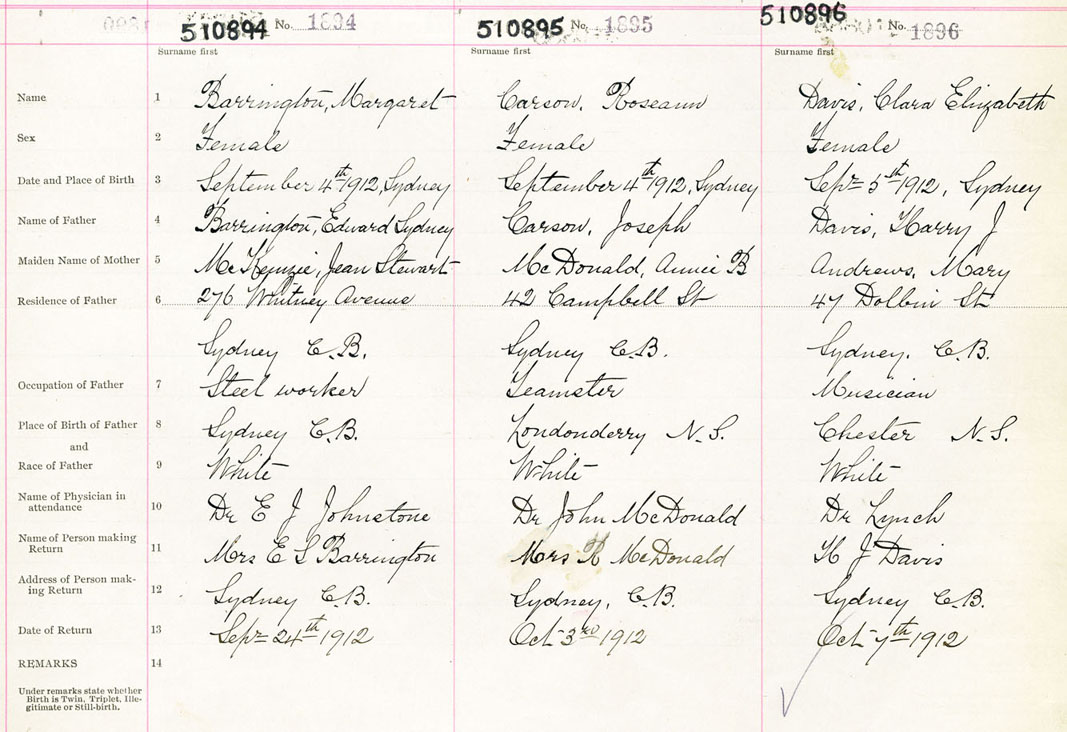 510894 No. 1894 510895 No. 1895 510896 No. 1896
Surname first Surname first Surname first
Name 1 Barrington, Margaret Carson, Roseann Davis, Clara Elizabeth
Sex 2 Female Female Female
Date and Place of Birth 3 September 4th 1912, Sydney September 4th 1912, Sydney Sept 5th 1912, Sydney
Name of Father 4 Barrington, Edward Sydney Carson, Joseph Davis, Harry J
Maiden Name of Mother 5 McKenzie, Jean Stewart McDonald, Annie B Andrews, Mary
Residence of Father 6 276 Whitney Avenue 42 Campbell St 47 Dolbin St
Sydney C.B. Sydney C.B. Sydney. C.B.
Occupation of Father 7 Steel worker Teamster Musician
Place of Birth of Father 8 Sydney C.B. Londonderry N.S. Chester N.S.
and
Race of Father 9 White White White
Name of Physician in
attendance 10 Dr E J Johnstone Dr John McDonald Dr Lynch
Name of Person making
Return 11 Mrs E S Barrington Mrs R McDonald H J Davis
Address of Person mak-
ing Return 12 Sydney C.B. Sydney, C.B. Sydney C.B.
Date of Return 13 Sept 24th 1912 Oct 3rd 1912 Oct 7th 1912
REMARKS 14
Under remarks state whether
Birth is Twin, Triplet, Ille-
gitimate or Still-birth.